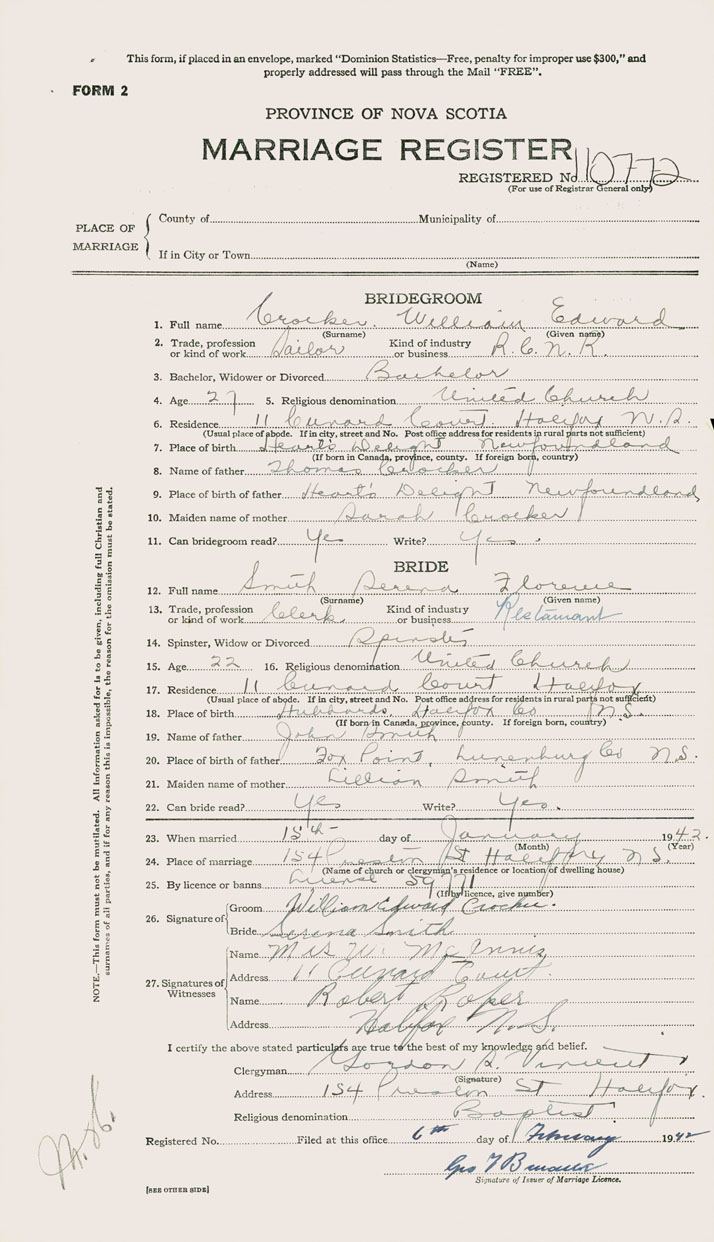 This form, if placed in an envelope, marked "Dominion Statistics—Free, penalty for improper use $300," and
properly addressed will pass through the Mail "FREE".
FORM 2
PROVINCE OF NOVA SCOTIA
MARRIAGE REGISTER
REGISTERED No. 110772
(For use of Registrar General only)
PLACE OF MARRIAGE
County of Municipality of
If in City or Town
(Name)
BRIDEGROOM
1. Full name Crocker. William Edward
(Surname) (Given name)
2. Trade, profession or kind of work Sailor Kind of industry or business R.C.N.R.
3. Bachelor, Widower or Divorced Bachelor
4. Age 27 5. Religious denomination United Church
6. Residence 11 Cunard Court. Halifax N.S.
(Usual place of abode. If in city, street and No. Post office address for residents in rural parts not sufficient)
7. Place of birth Heart's Delight Newfoundland
(If born in Canada, province, county. If foreign born, country)
8. Name of father Thomas Crocker
9. Place of birth of father Heart's Delight Newfoundland
10. Maiden name of mother Sarah Crocker
11. Can bridegroom read? Yes Write? Yes.
BRIDE
12. Full name Smith Serena Florence
(Surname) (Given name)
13. Trade, profession or kind of work Clerk Kind of industry or business Restaurant
14. Spinster, Widow or Divorced Spinster
15. Age 22 16. Religious denomination United Church
17. Residence 11 Cunard Court Halifax
(Usual place of abode. If in city, street and No. Post office address for residents in rural parts not sufficient)
18. Place of birth Hubbards, Halifax Co N.S.
(If born in Canada, province, county. If foreign born, country)
19. Name of father John Smith
20. Place of birth of father Fox Point, Lunenburg Co N.S.
21. Maiden name of mother Lillian Smith
22. Can bride read? Yes Write? Yes.
23. When married 15th day of January 1942.
(Month) (Year)
24. Place of marriage 154 Preston St Halifax N.S.
(Name of church or clergyman's residence or location of dwelling house)
25. By licence or banns License 59771
(If by licence, give number)
26. Signature of
Groom William Edward Crocker.
Bride Serena Smith
27. Signatures of Witnesses
Name Mrs W. McInnis
Address 11 Cunard Court.
Name Robert Roper
Address Halifax N.S.
I certify the above stated particulars are true to the best of my knowledge and belief.
Clergyman Gordon R. Vincent
(Signature)
Address 154 Preston St Halifax.
Religious denomination Baptist
Registered No. Filed at this office 6th day of February 1942
Signature of Issuer of Marriage Licence.
[SEE OTHER SIDE]
NOTE.—This form must not be mutilated. All information asked for is to be given, including full Christian and
surnames of all parties, and if for any reason this is impossible, the reason for the omission must be stated.